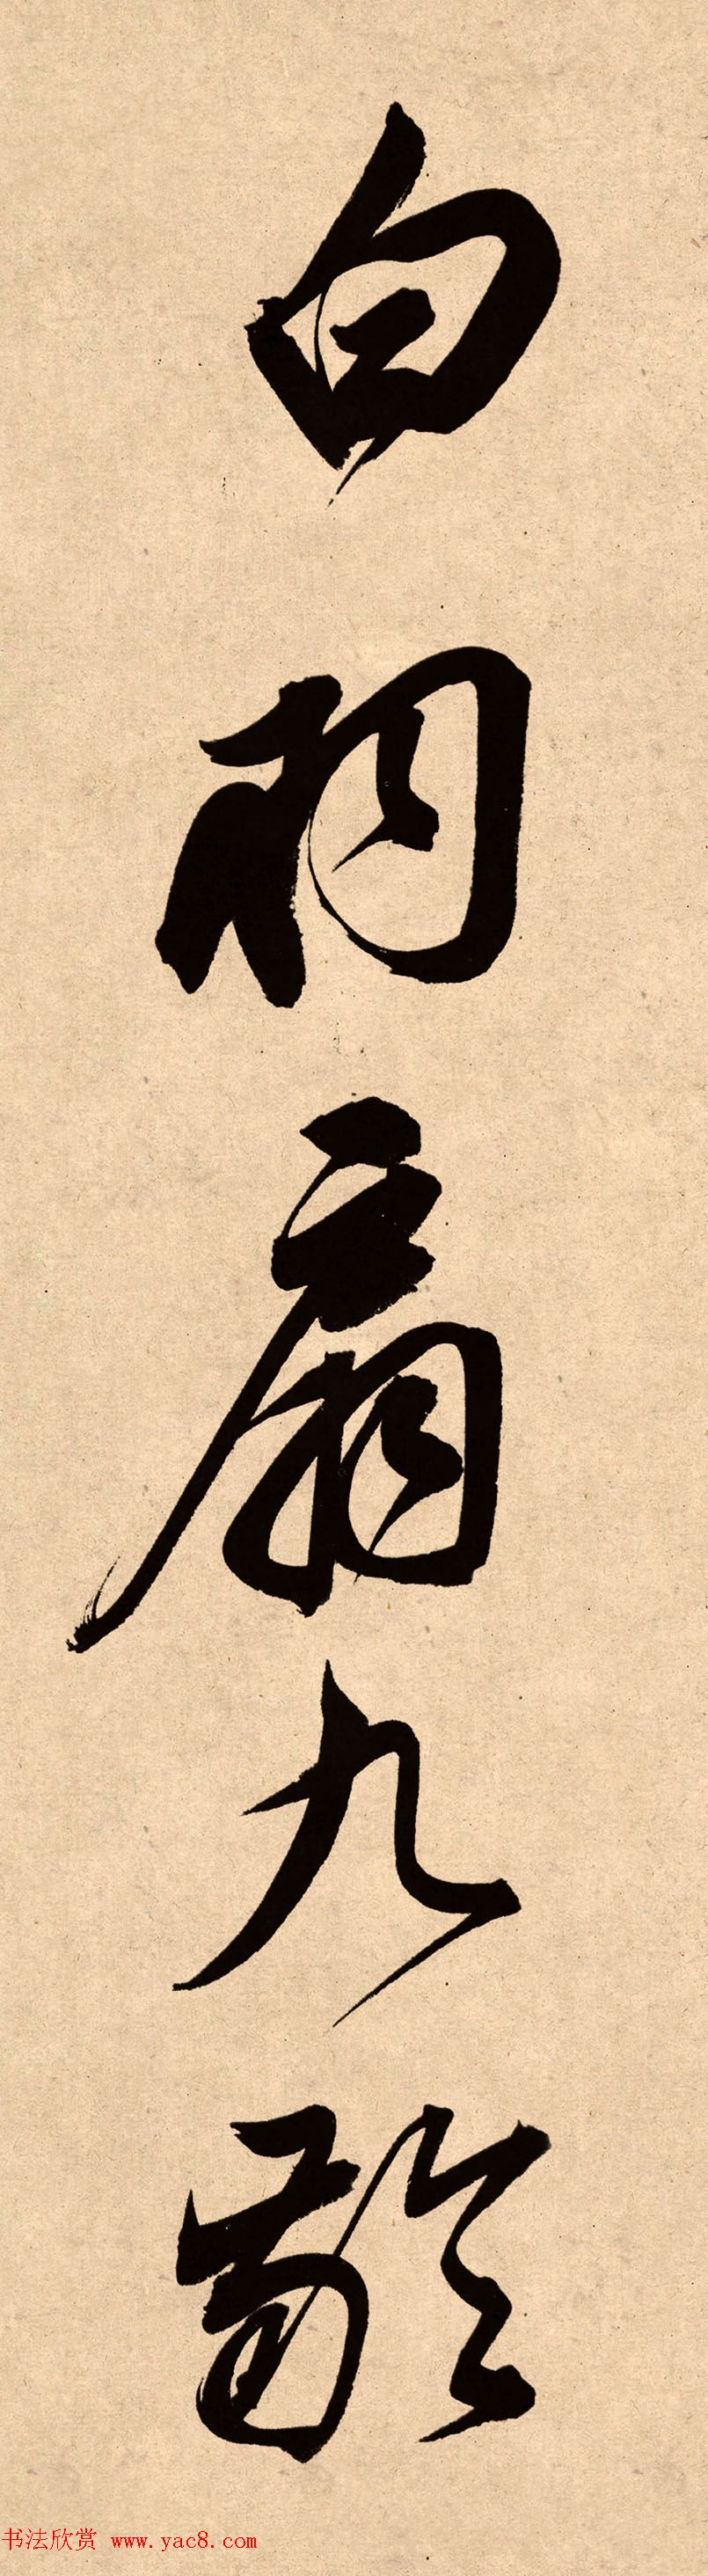 白羽扇九齡
书法欣赏 www.yac8.com